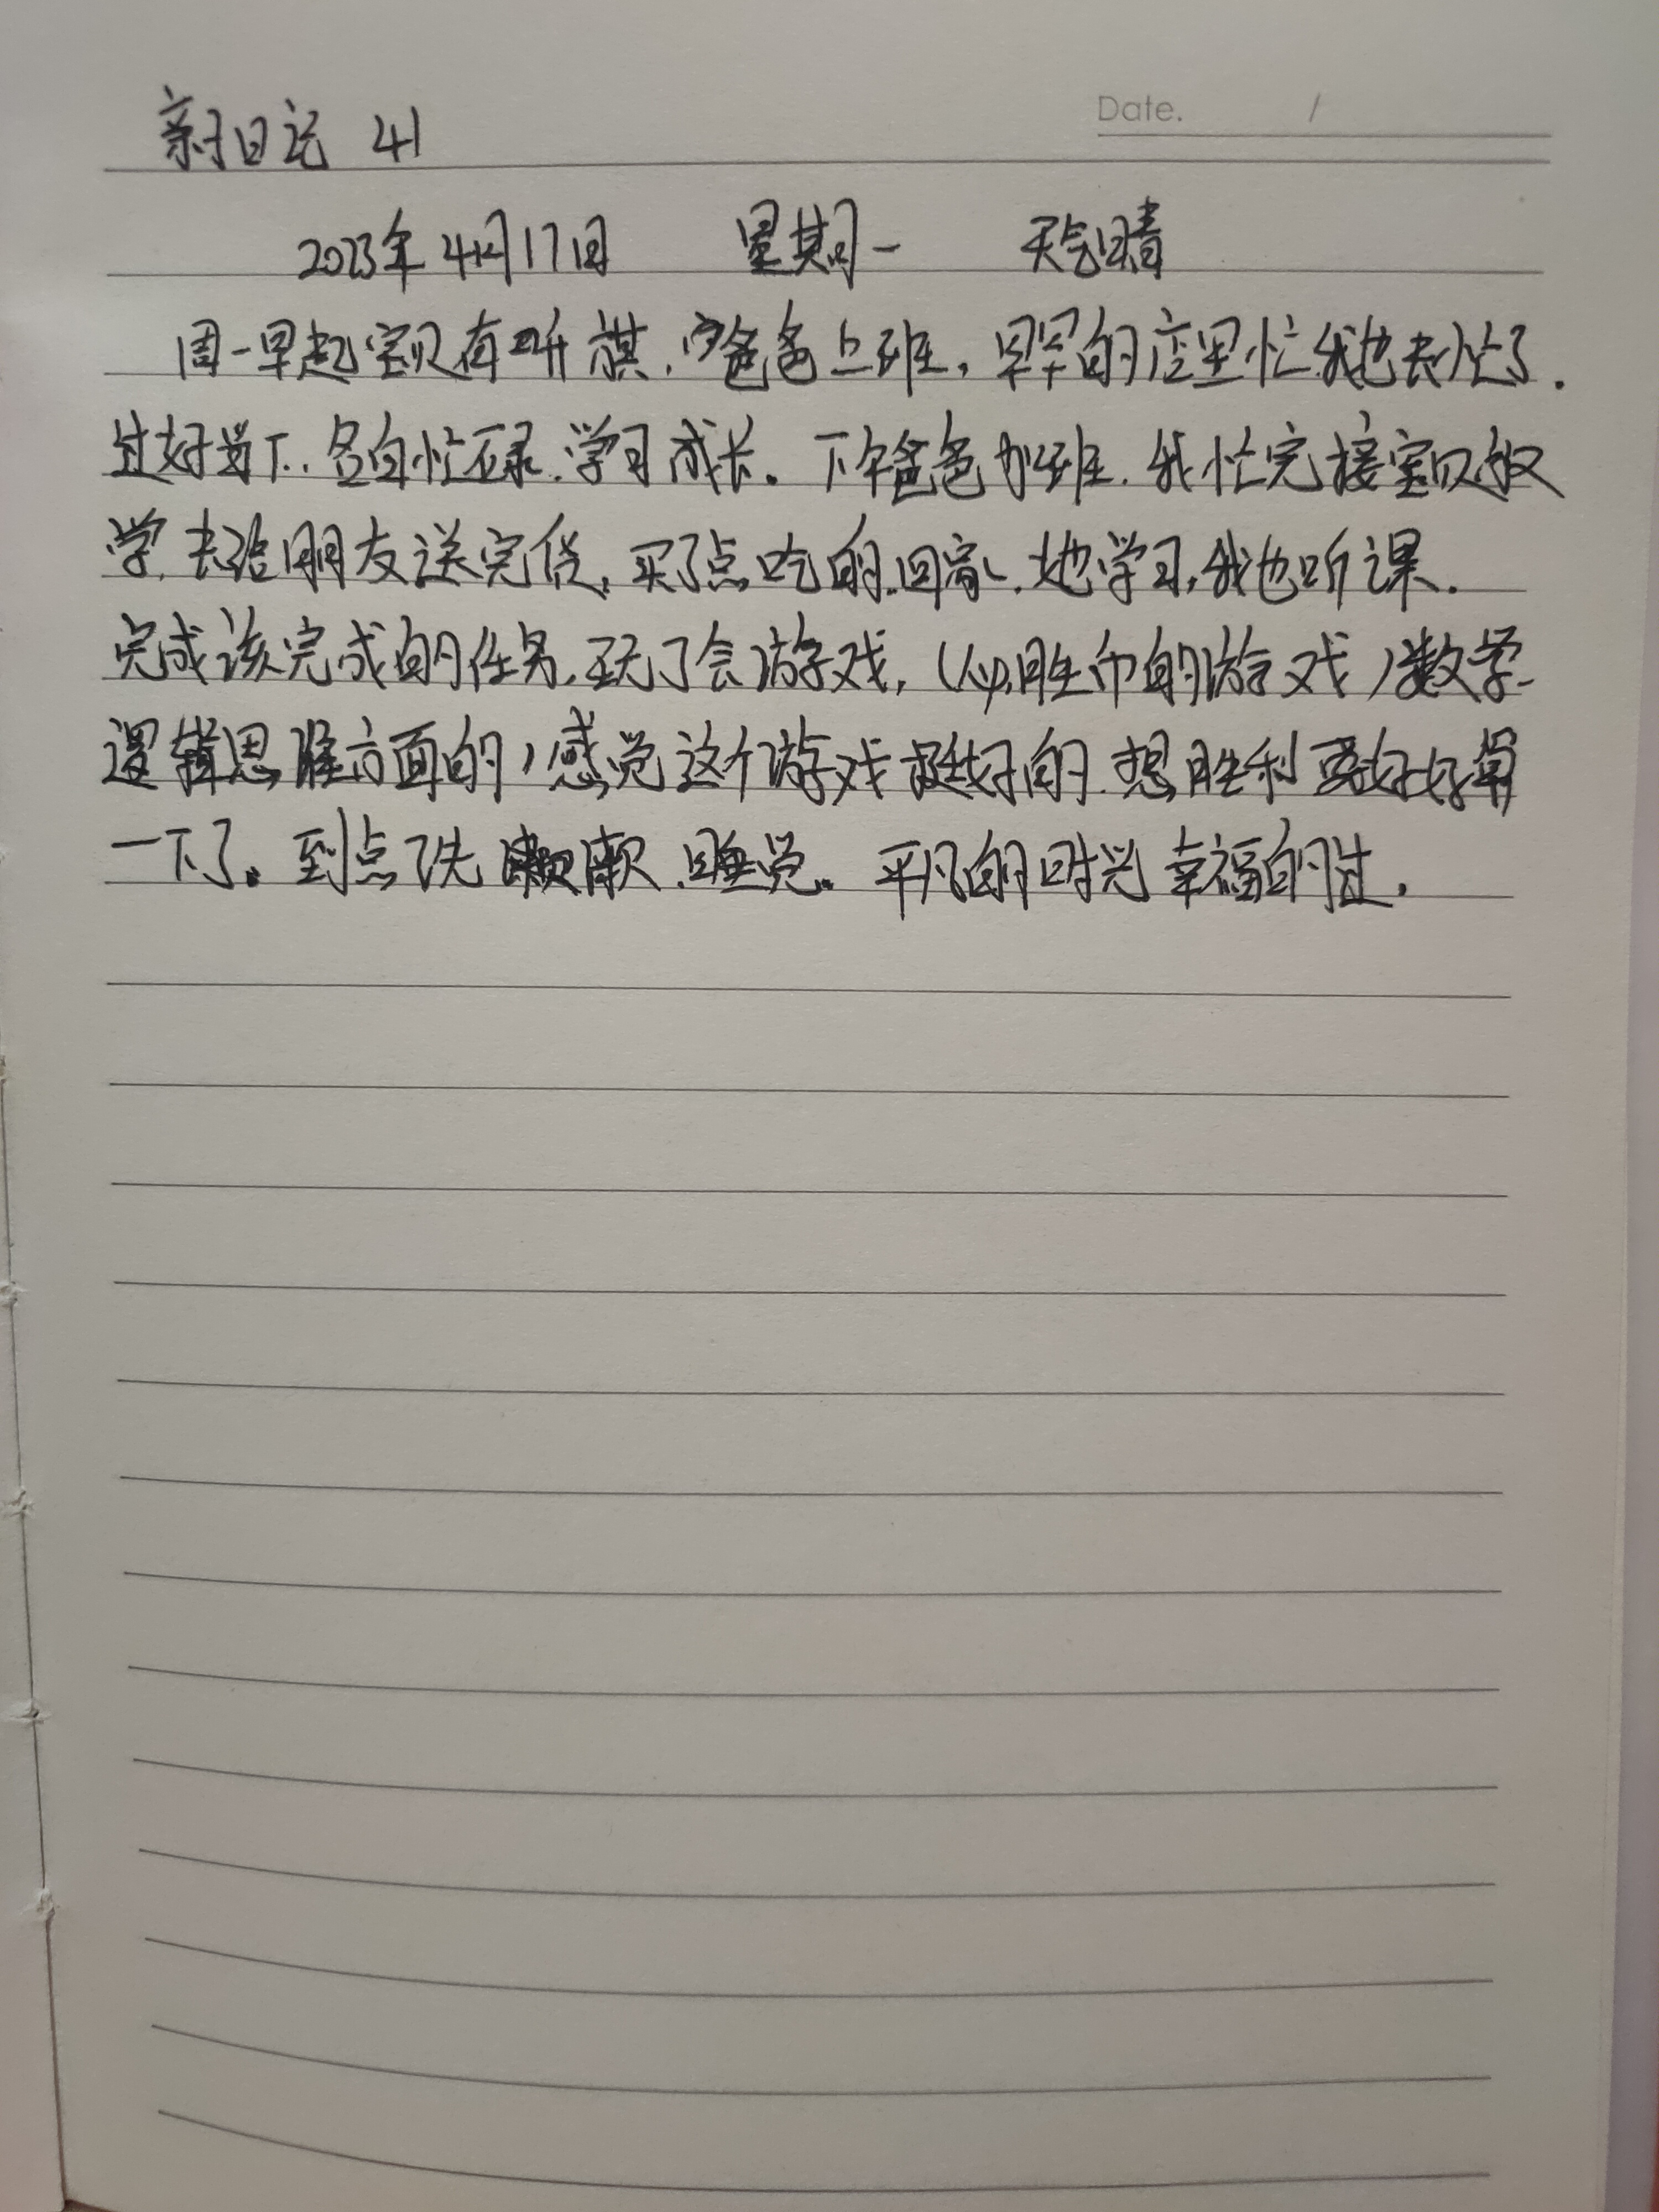 亲子日记 41
Date. /
2023年4月17日 星期一 天气晴
周一早起宝贝有听 爸爸上班，早早的店里忙我也去忙了.
过好当下.各自忙碌.学习成长。下午爸爸加班.我忙完接宝贝放
学,去给朋友送完货,买了点吃的.回家.她学习,我也听课.
完成该完成的任务.玩了会游戏,( 的游戏)数学
逻辑思维方面的,感觉这个游戏挺好的.想胜利要好好算
一下了。到点洗漱漱.睡觉。平凡的时光幸福的过.